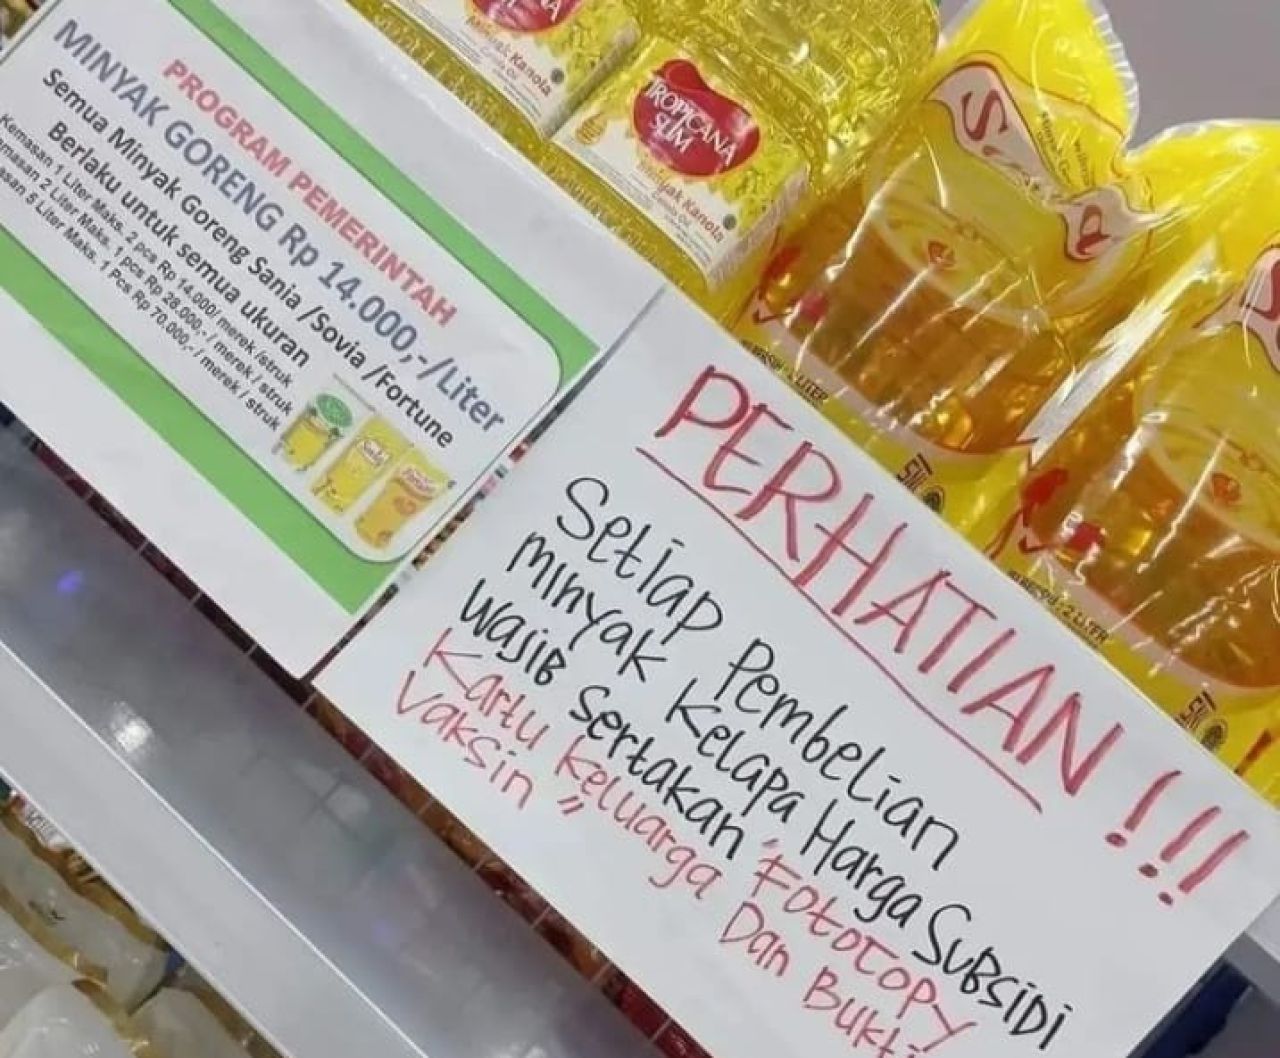 PROGRAM PEMERINTAH
MINYAK GORENG Rp 14.000,-/Liter
Semua Minyak Goreng Sania /Sovia /Fortune
Berlaku untuk semua ukuran
Kemasan 1 Liter Maks. 2 pcs Rp 14.000/ merek /struk
emasan 2 Liter Maks. 1 pcs Rp 28.000,- / merek / struk
asan 5 Liter Maks. 1 Pcs Rp 70.000,-/ merek / struk
Minyak Kanola
Canola Oil
TROPICANA
SLIM
Minyak Kanola
Canola Oil
2 LITER
2 LITER
PERHATIAN !!!
Setiap Pembelian
Minyak Kelapa Harga Subsidi
Wajib Sertakan "Fotocopy
Kartu Keluarga Dan Bukti
Vaksin "